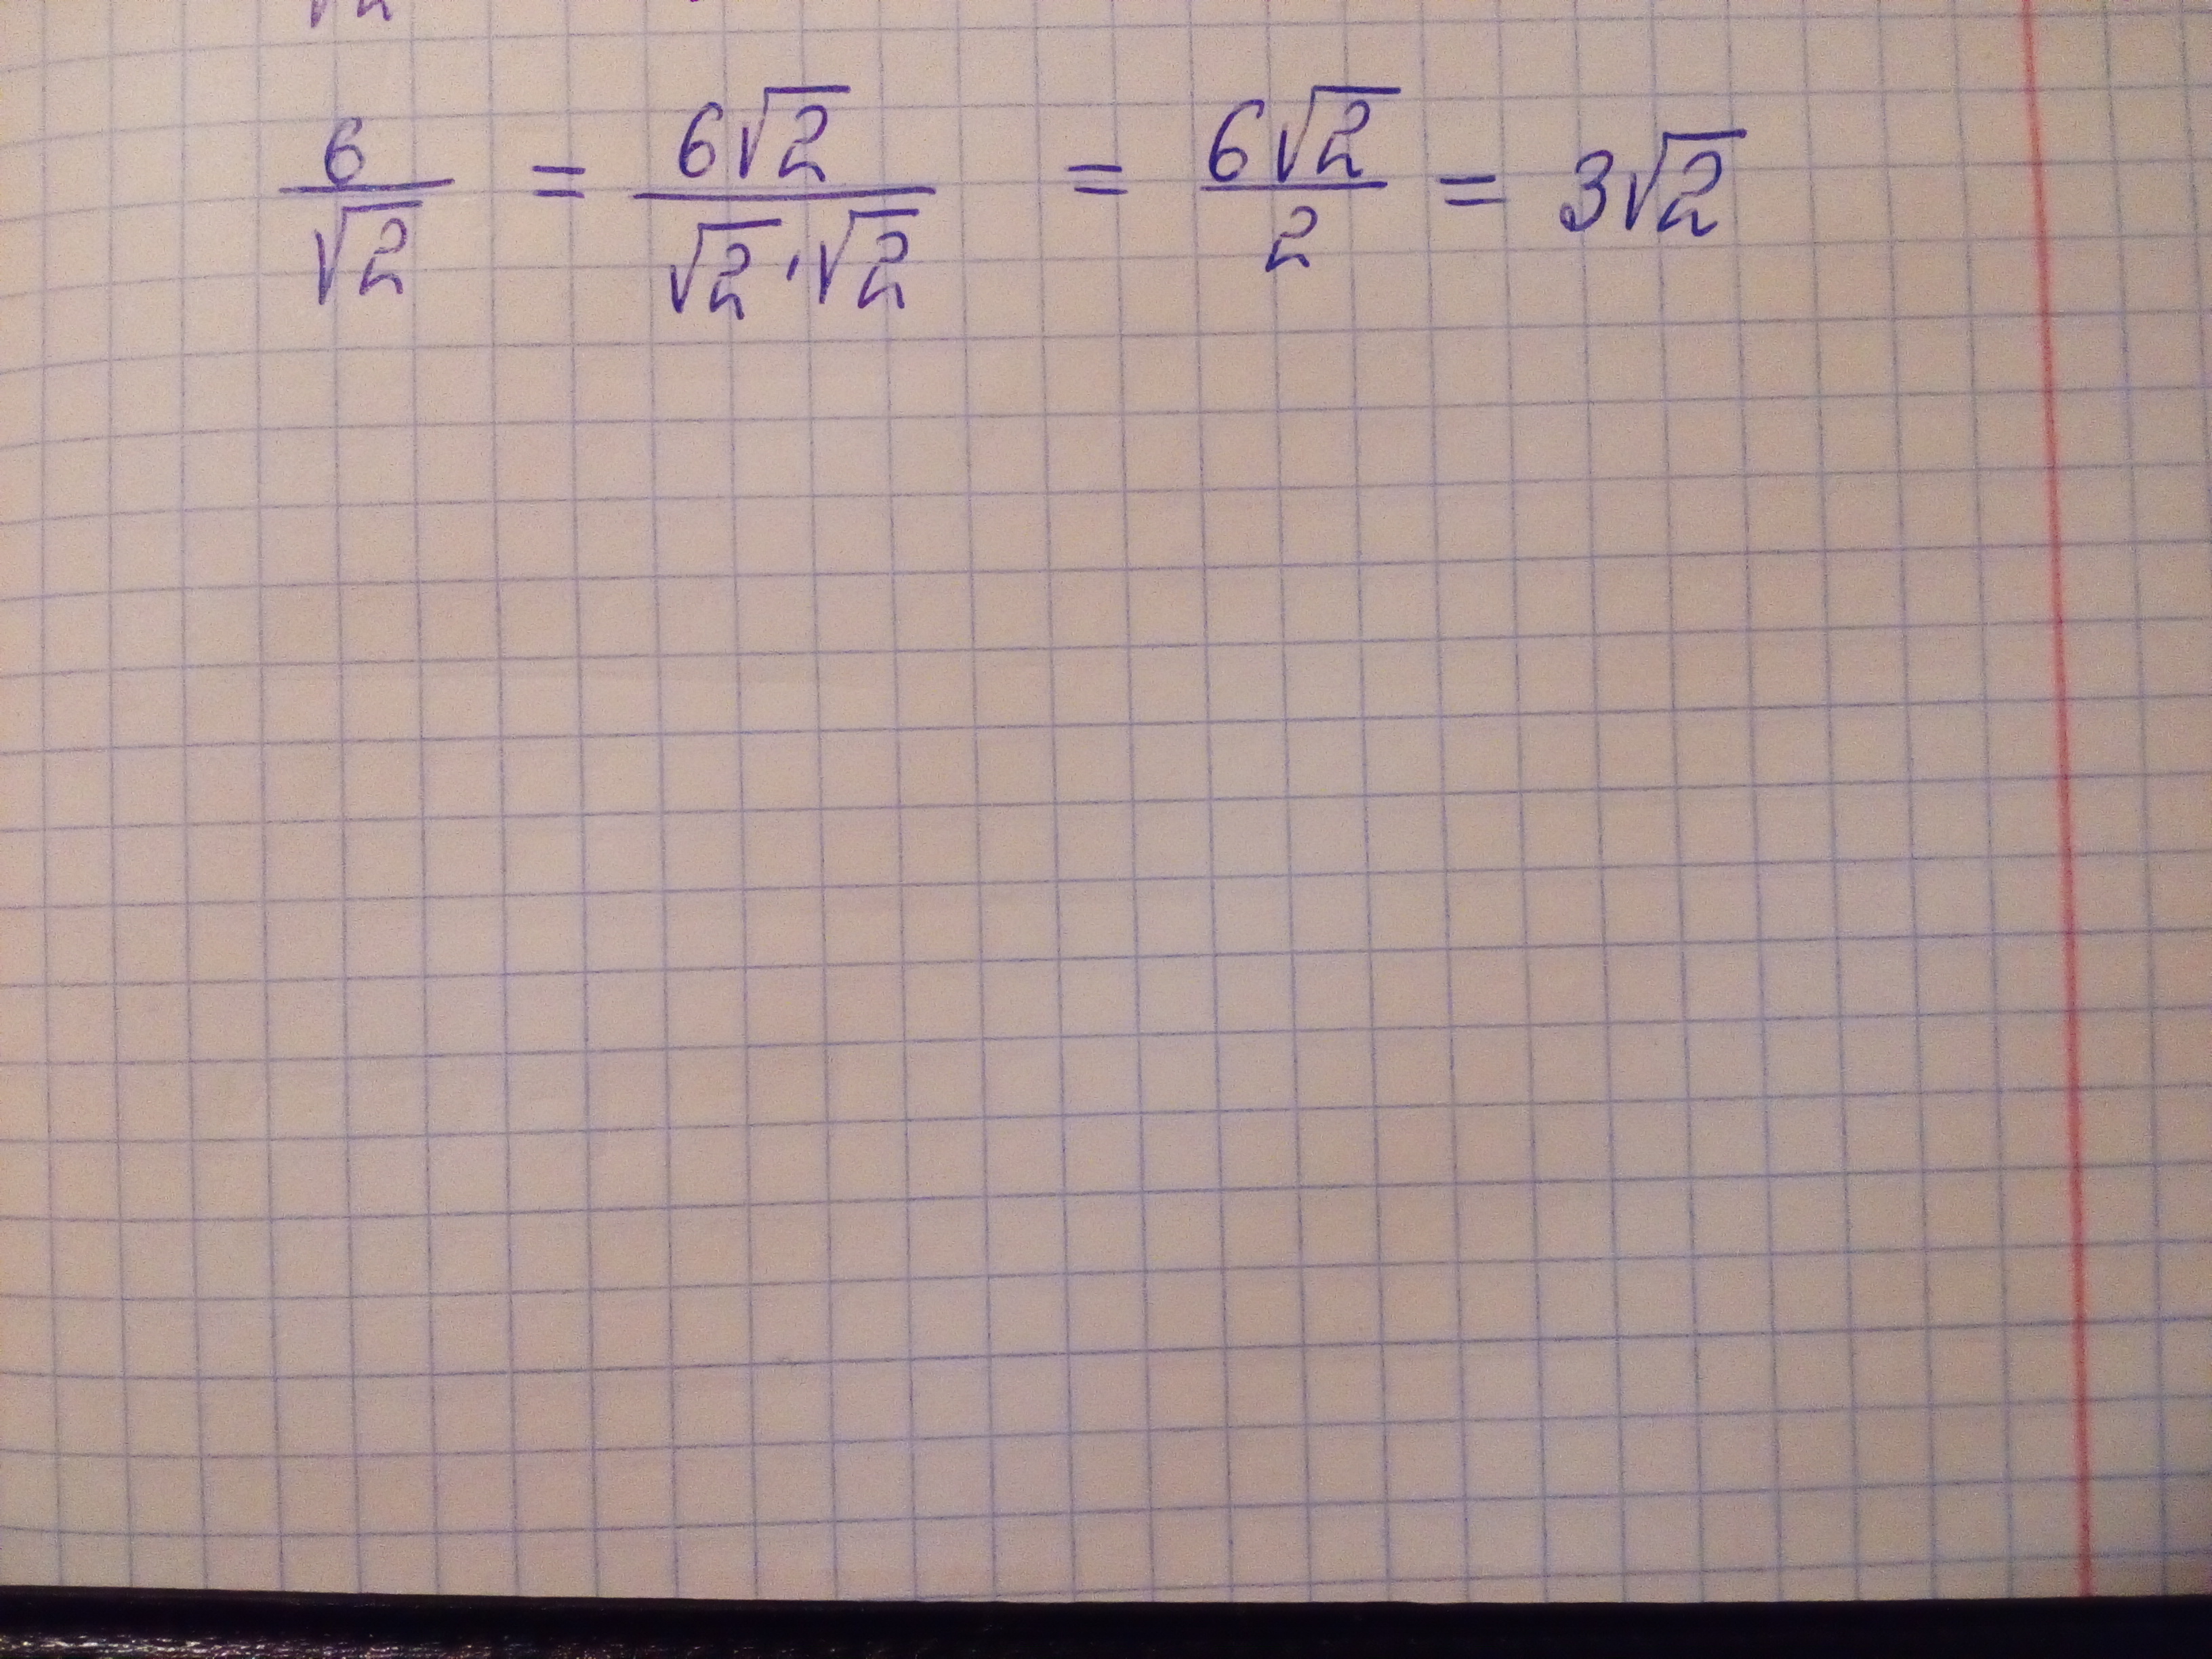 6/√2 = 6√2/(√2·√2) = 6√2/2 = 3√2